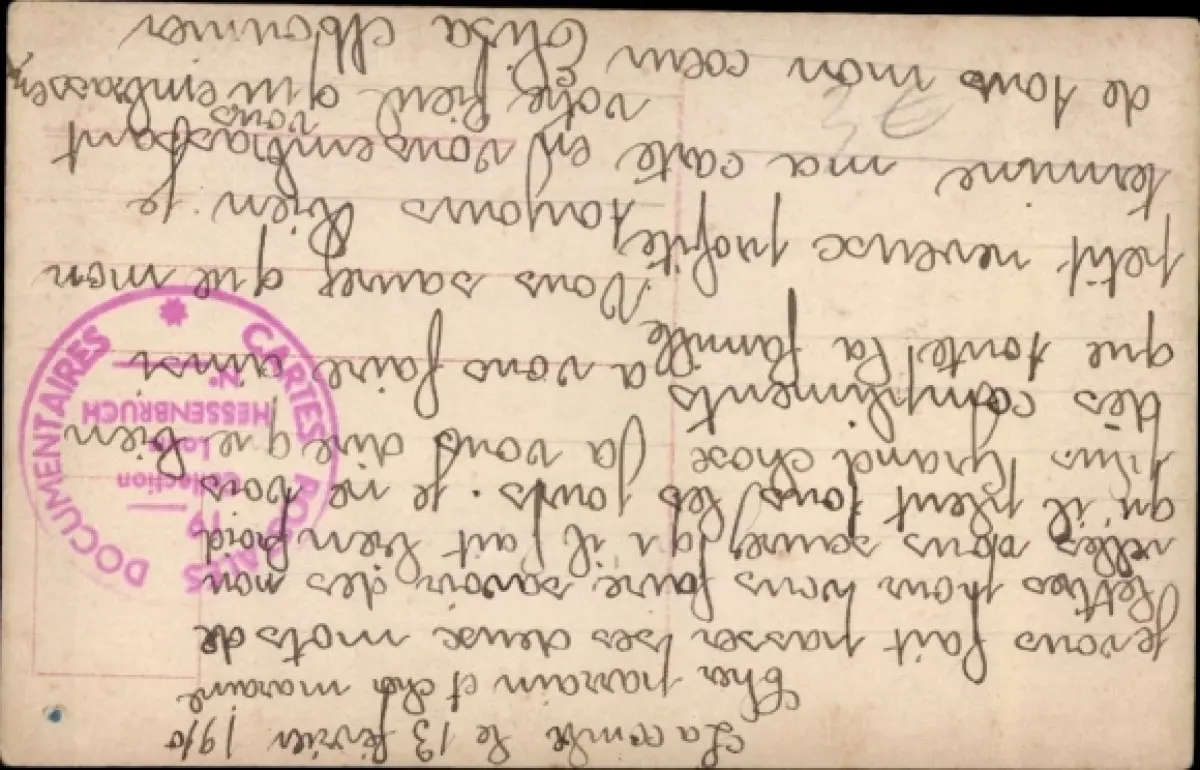 La combe le 13 février 1910
Cher parrain et cher maraine
Je vous fait passer ses deux mots de
lettres pour vous faire savoir des nou
velles vous savez qu'il fait bien froid
qu'il pleut tous les jours. je ne vois
plus grand chose a vous dire que bien
des compliments
que toute la famille a vous faire ainsi
Vous saurez que mon
petit neveux profite toujours bien je
termine ma carte en vous embrassant
votre fieul qui vous embrasse
de tous mon coeur Elisa Monnier
CARTES POSTALES
DOCUMENTAIRES
Collection
Loïc
HESSENBRUCH
N°